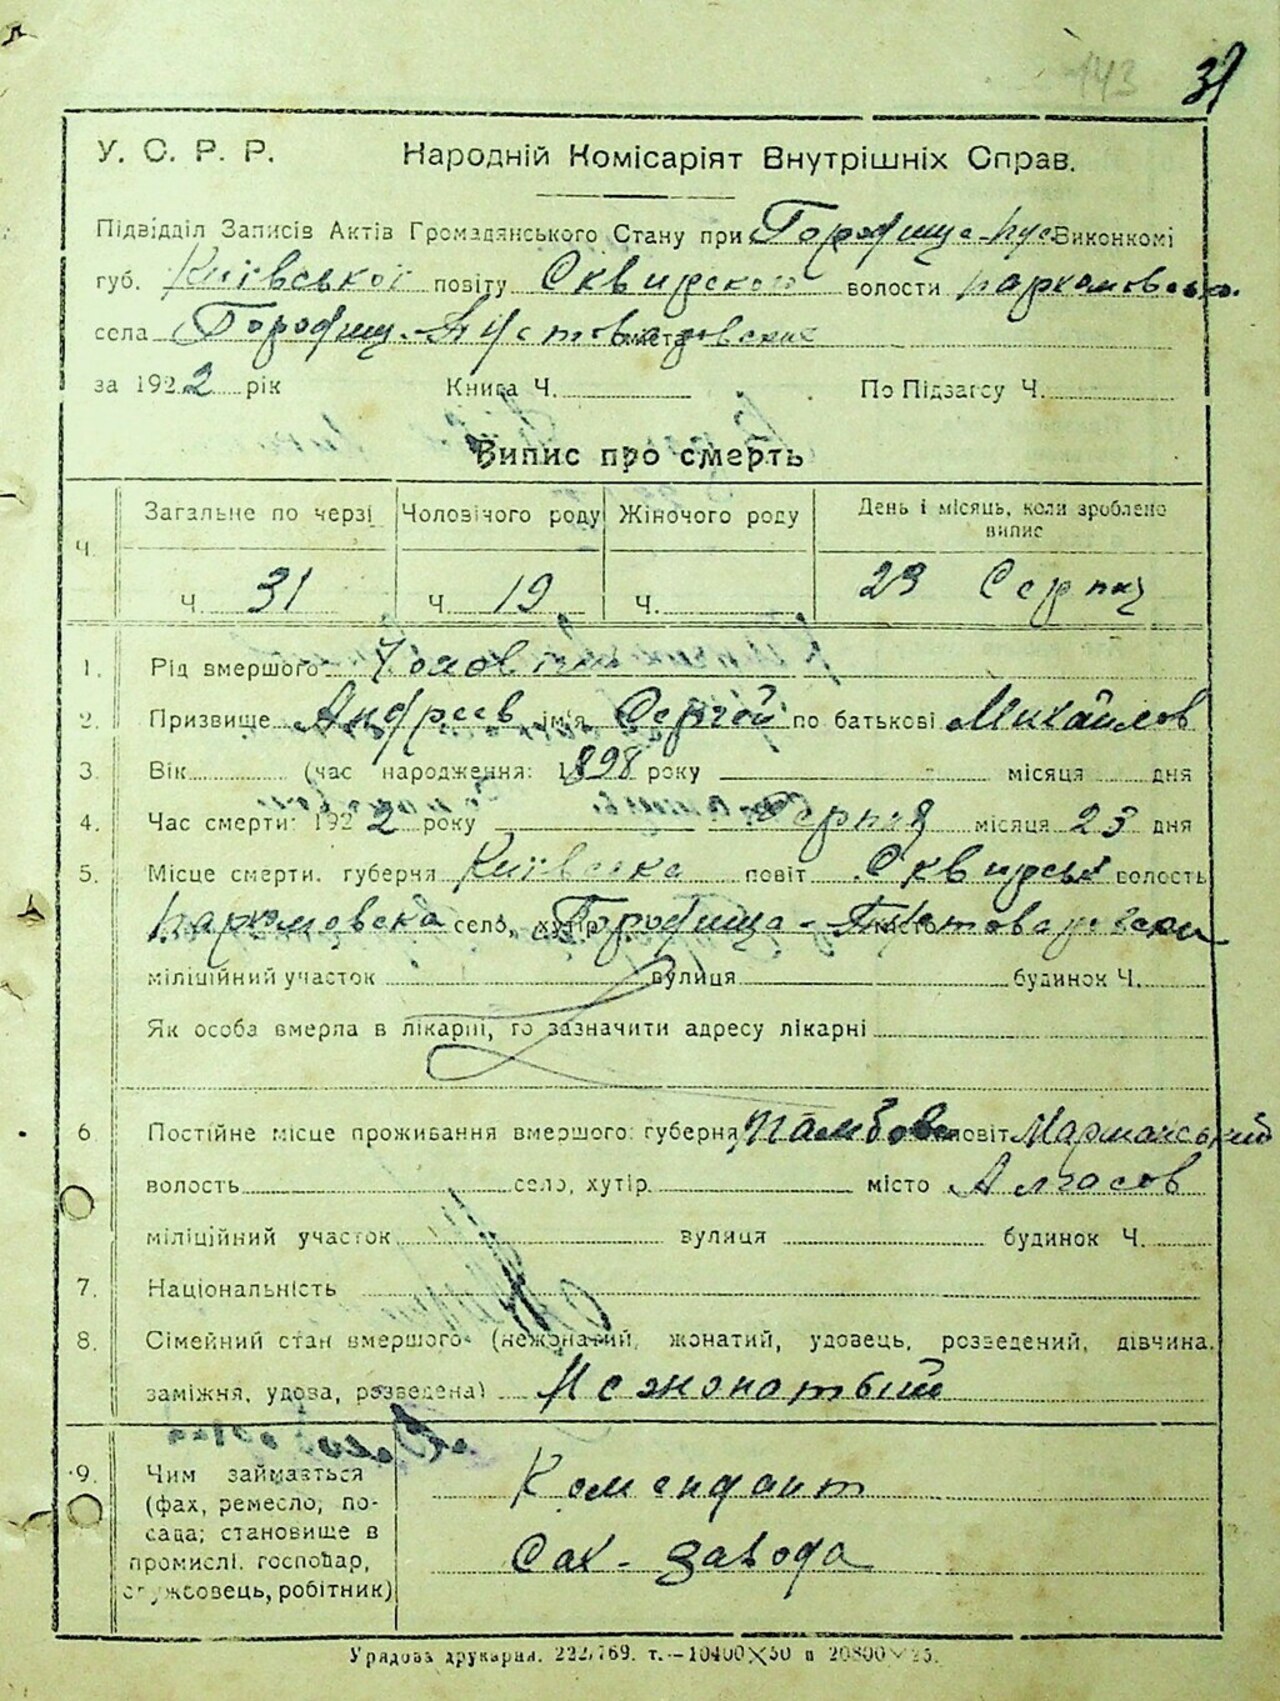 143
31
У. С. Р. Р. Народній Комісаріят Внутрішніх Справ.
Підвідділ Записів Актів Громадянського Стану при Городище-Пус Виконкомі
губ. Київської повіту Сквирской волости Пархомовско.
села Городищ-Пустоваровские міста
за 1922 рік Книга Ч. По Підзагсу Ч.
Випис про смерть
Ч. Загальне по черзі Чоловічого роду Жіночого роду День і місяць, коли зроблено випис
Ч. 31 Ч. 19 Ч. 23 Серпня
1. Рід вмершого Чоловічий
2. Призвище Андреев ім'я Сергей по батькові Михайлов
3. Вік (час народження: 1898 року місяця дня
4. Час смерти: 1922 року Серпня місяця 23 дня
5. Місце смерти. губерня Київска повіт Сквирський волость
Пархомовска село, хутір Городища-Пустоваровски місто
міліційний участок вулиця будинок Ч.
Як особа вмерла в лікарні, то зазначити адресу лікарні
6. Постійне місце проживання вмершого: губерня Тамбовс повіт Маршанський
волость село, хутір місто Алгасов
міліційний участок вулиця будинок Ч.
7. Національність
8. Сімейний стан вмершого (нежонатий, жонатий, удовець, розведений, дівчина,
заміжня, удова, розведена) Нежонатый
9. Чим займається Комендант
(фах, ремесло, по-
сада; становище в Сах-завода
промислі. господар,
службовець, робітник)
Урядова друкарня. 222/769. т.—10400×50 и 20800×25.